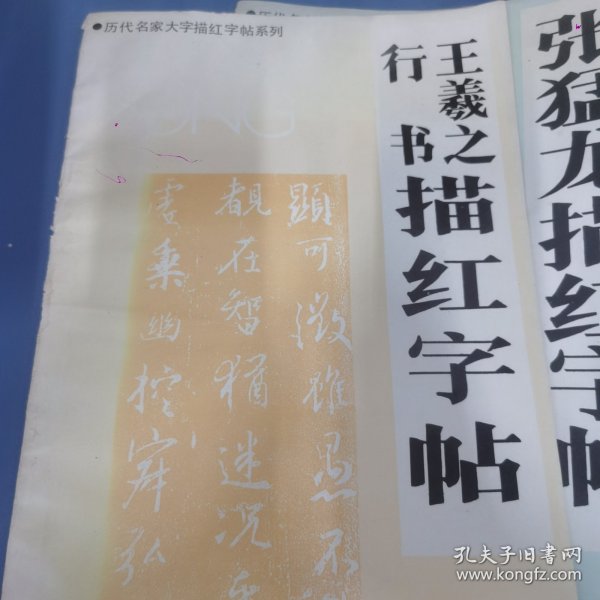 ●历代名家大字描红字帖系列
王羲之
行书
描红字帖
张猛龙描红字帖
顯可徵雖愚不
覩在智猶迷况
虛乘幽控寂弘
孔夫子旧书网
www.kongfz.com